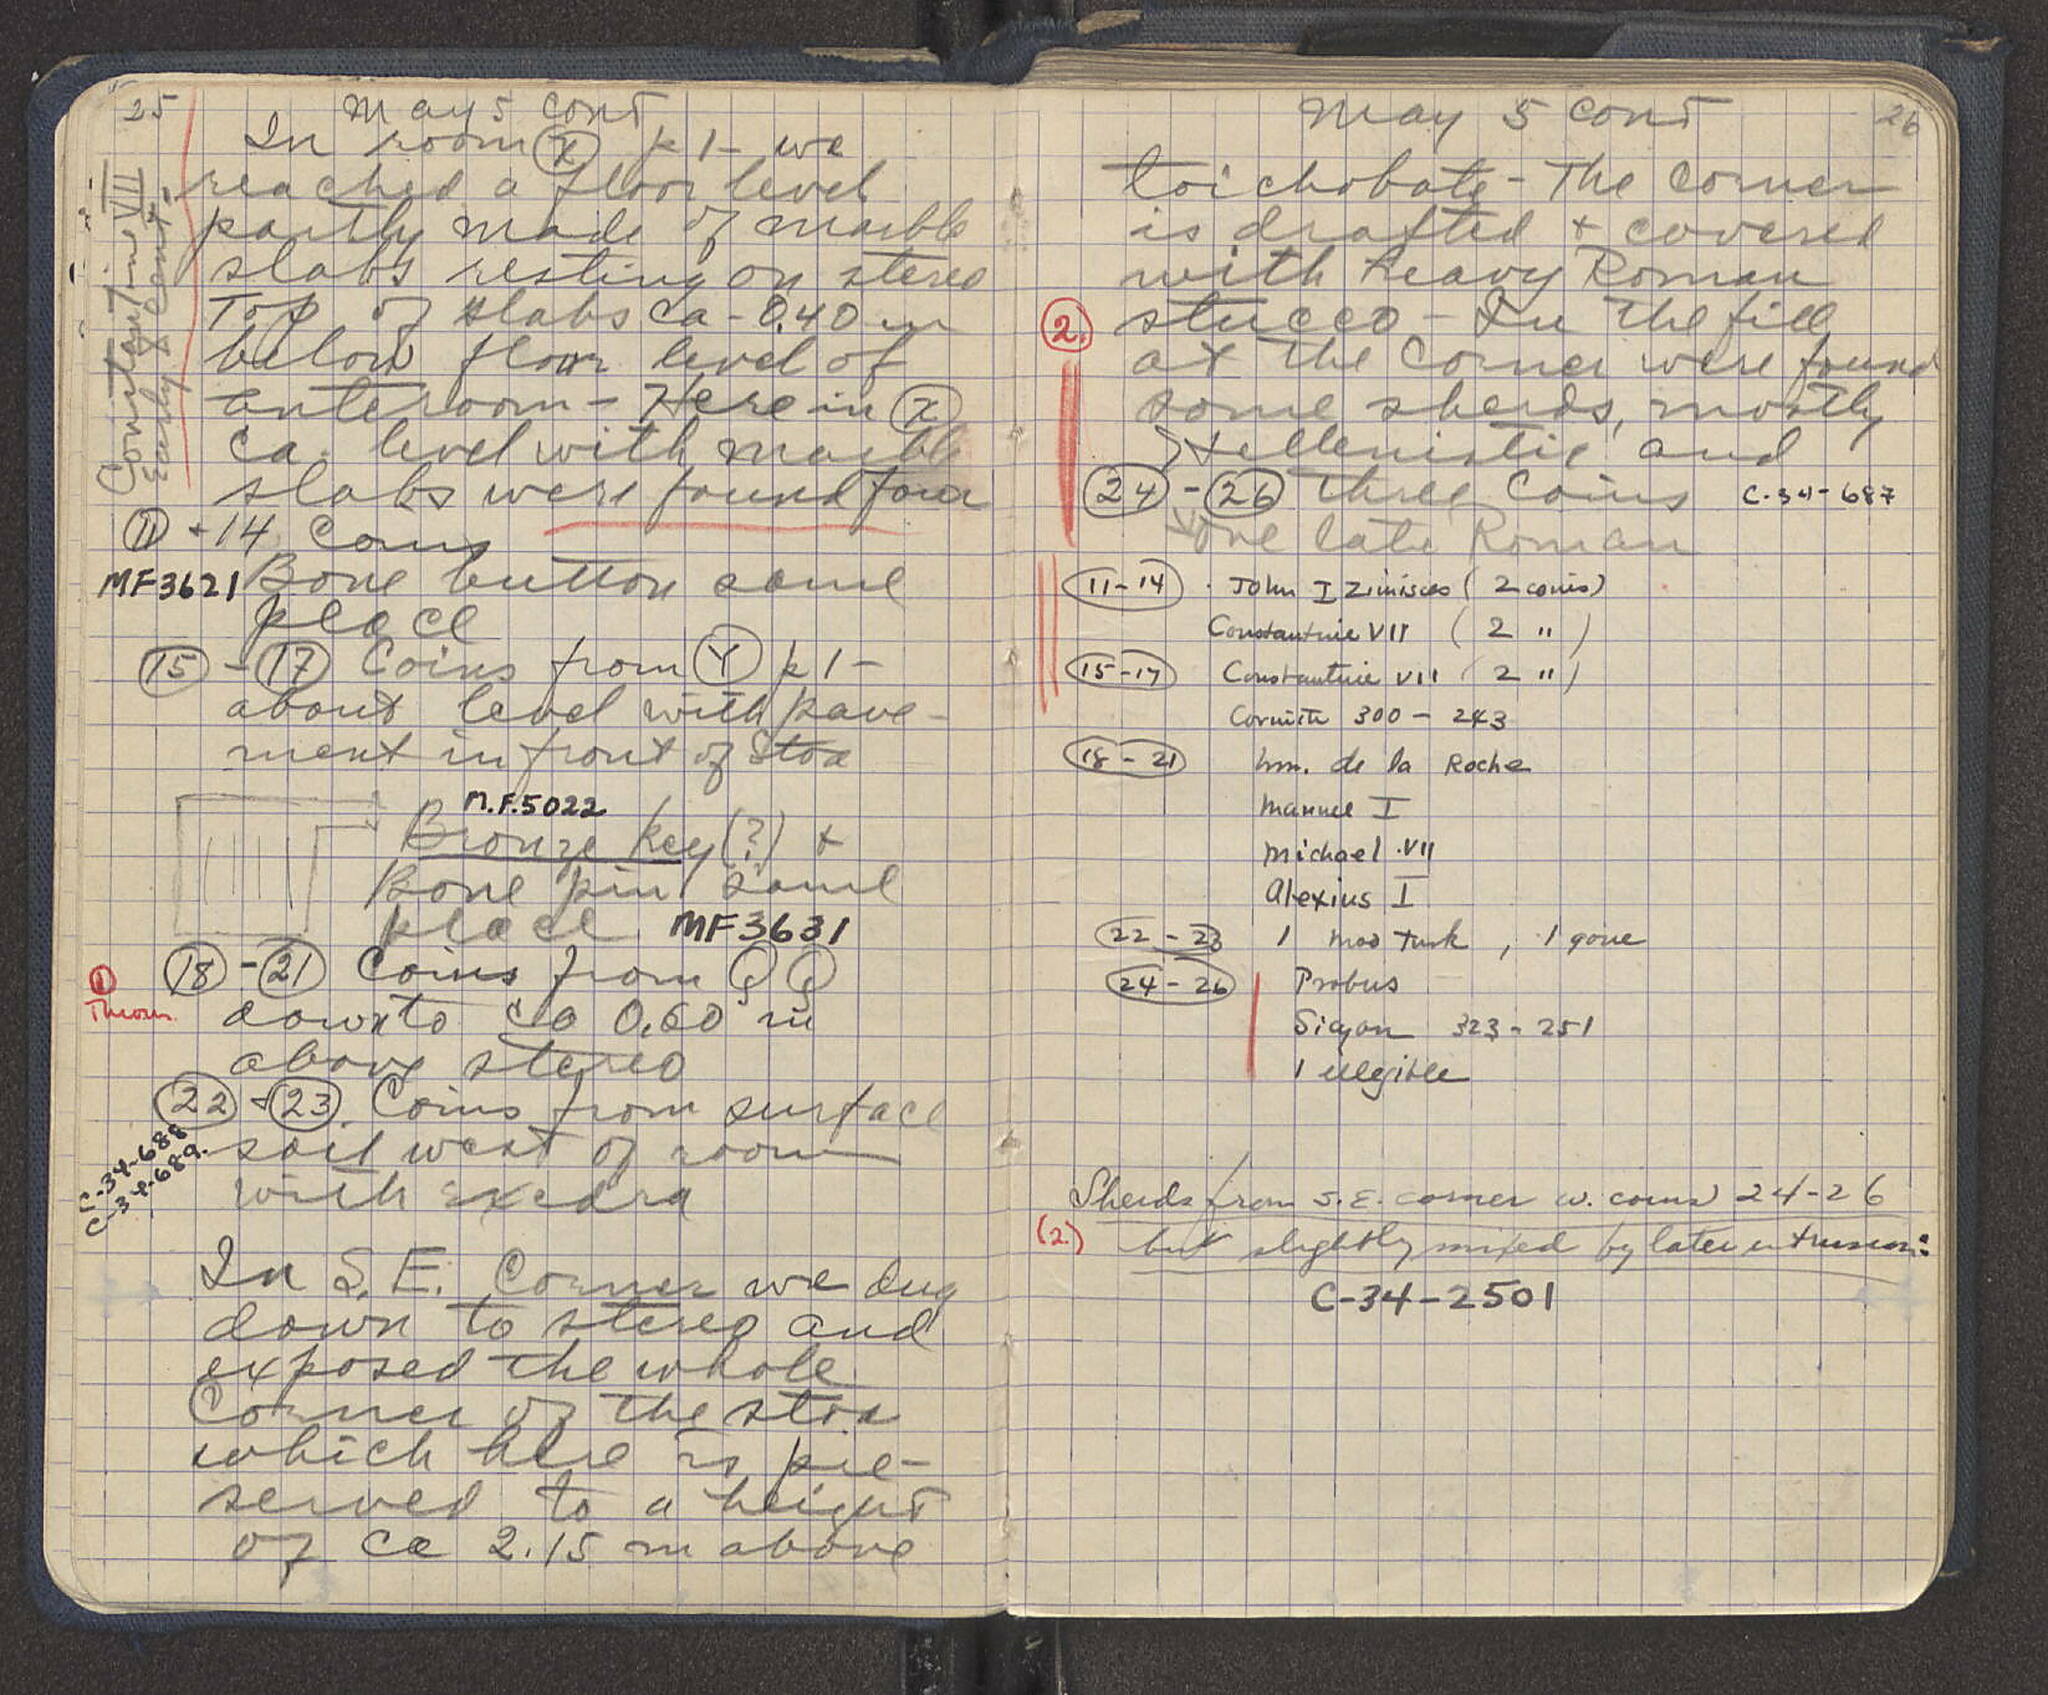 25
May 5 cont
In room X p 1 - we
reached a floor level
partly made of marble
slabs resting on stereo
Top of slabs ca - 0.40 m
below floor level of
anteroom - Here in X
ca. level with marble
slabs were found four
11 + 14 Coins
MF3621 Bone button same
place
15 - 17 Coins from Y p 1 -
about level with pave-
ment in front of Stoa
M.F.5022
Bronze key (?) +
Bone pin same
place MF3631
18 - 21 Coins from Q Q
down to ca 0.60 m
above stereo
22 + 23 Coins from surface
soil west of room
with exedra
In S.E. Corner we dug
down to stereo and
exposed the whole
Corner of the stoa
which here is pre-
served to a height
of ca 2.15 m above
Constantine VII
Early X cent.
1
Throm.
C-34-688
C-34-689.
May 5 cont
26
toichobate - The corner
is drafted + covered
with heavy Roman
2. stucco - In the fill
at the corner were found
some sherds, mostly
Hellenistic and
24 - 26 three coins C-34-687
one late Roman
11-14 John I Zimisces (2 coins)
Constantine VII (2 ")
15-17 Constantine VII (2 ")
Corinth 300 - 243
18 - 21 de la Roche
Manuel I
Michael VII
Alexius I
22 - 23 1 mod Turk, 1 gone
24 - 26 Probus
Sicyon 323 - 251
1 illegible
Sherds from S.E. corner w. coins 24-26
(2.) but slightly mixed by later intrusion:
C-34-2501